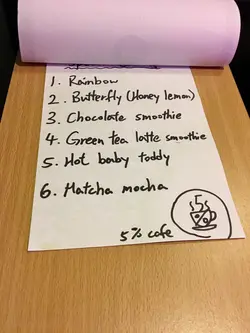 1. Rainbow
2. Butterfly (Honey lemon)
3. Chocolate smoothie
4. Green tea latte smoothie
5. Hot baby toddy
6. Matcha mocha
5% cafe
5
%